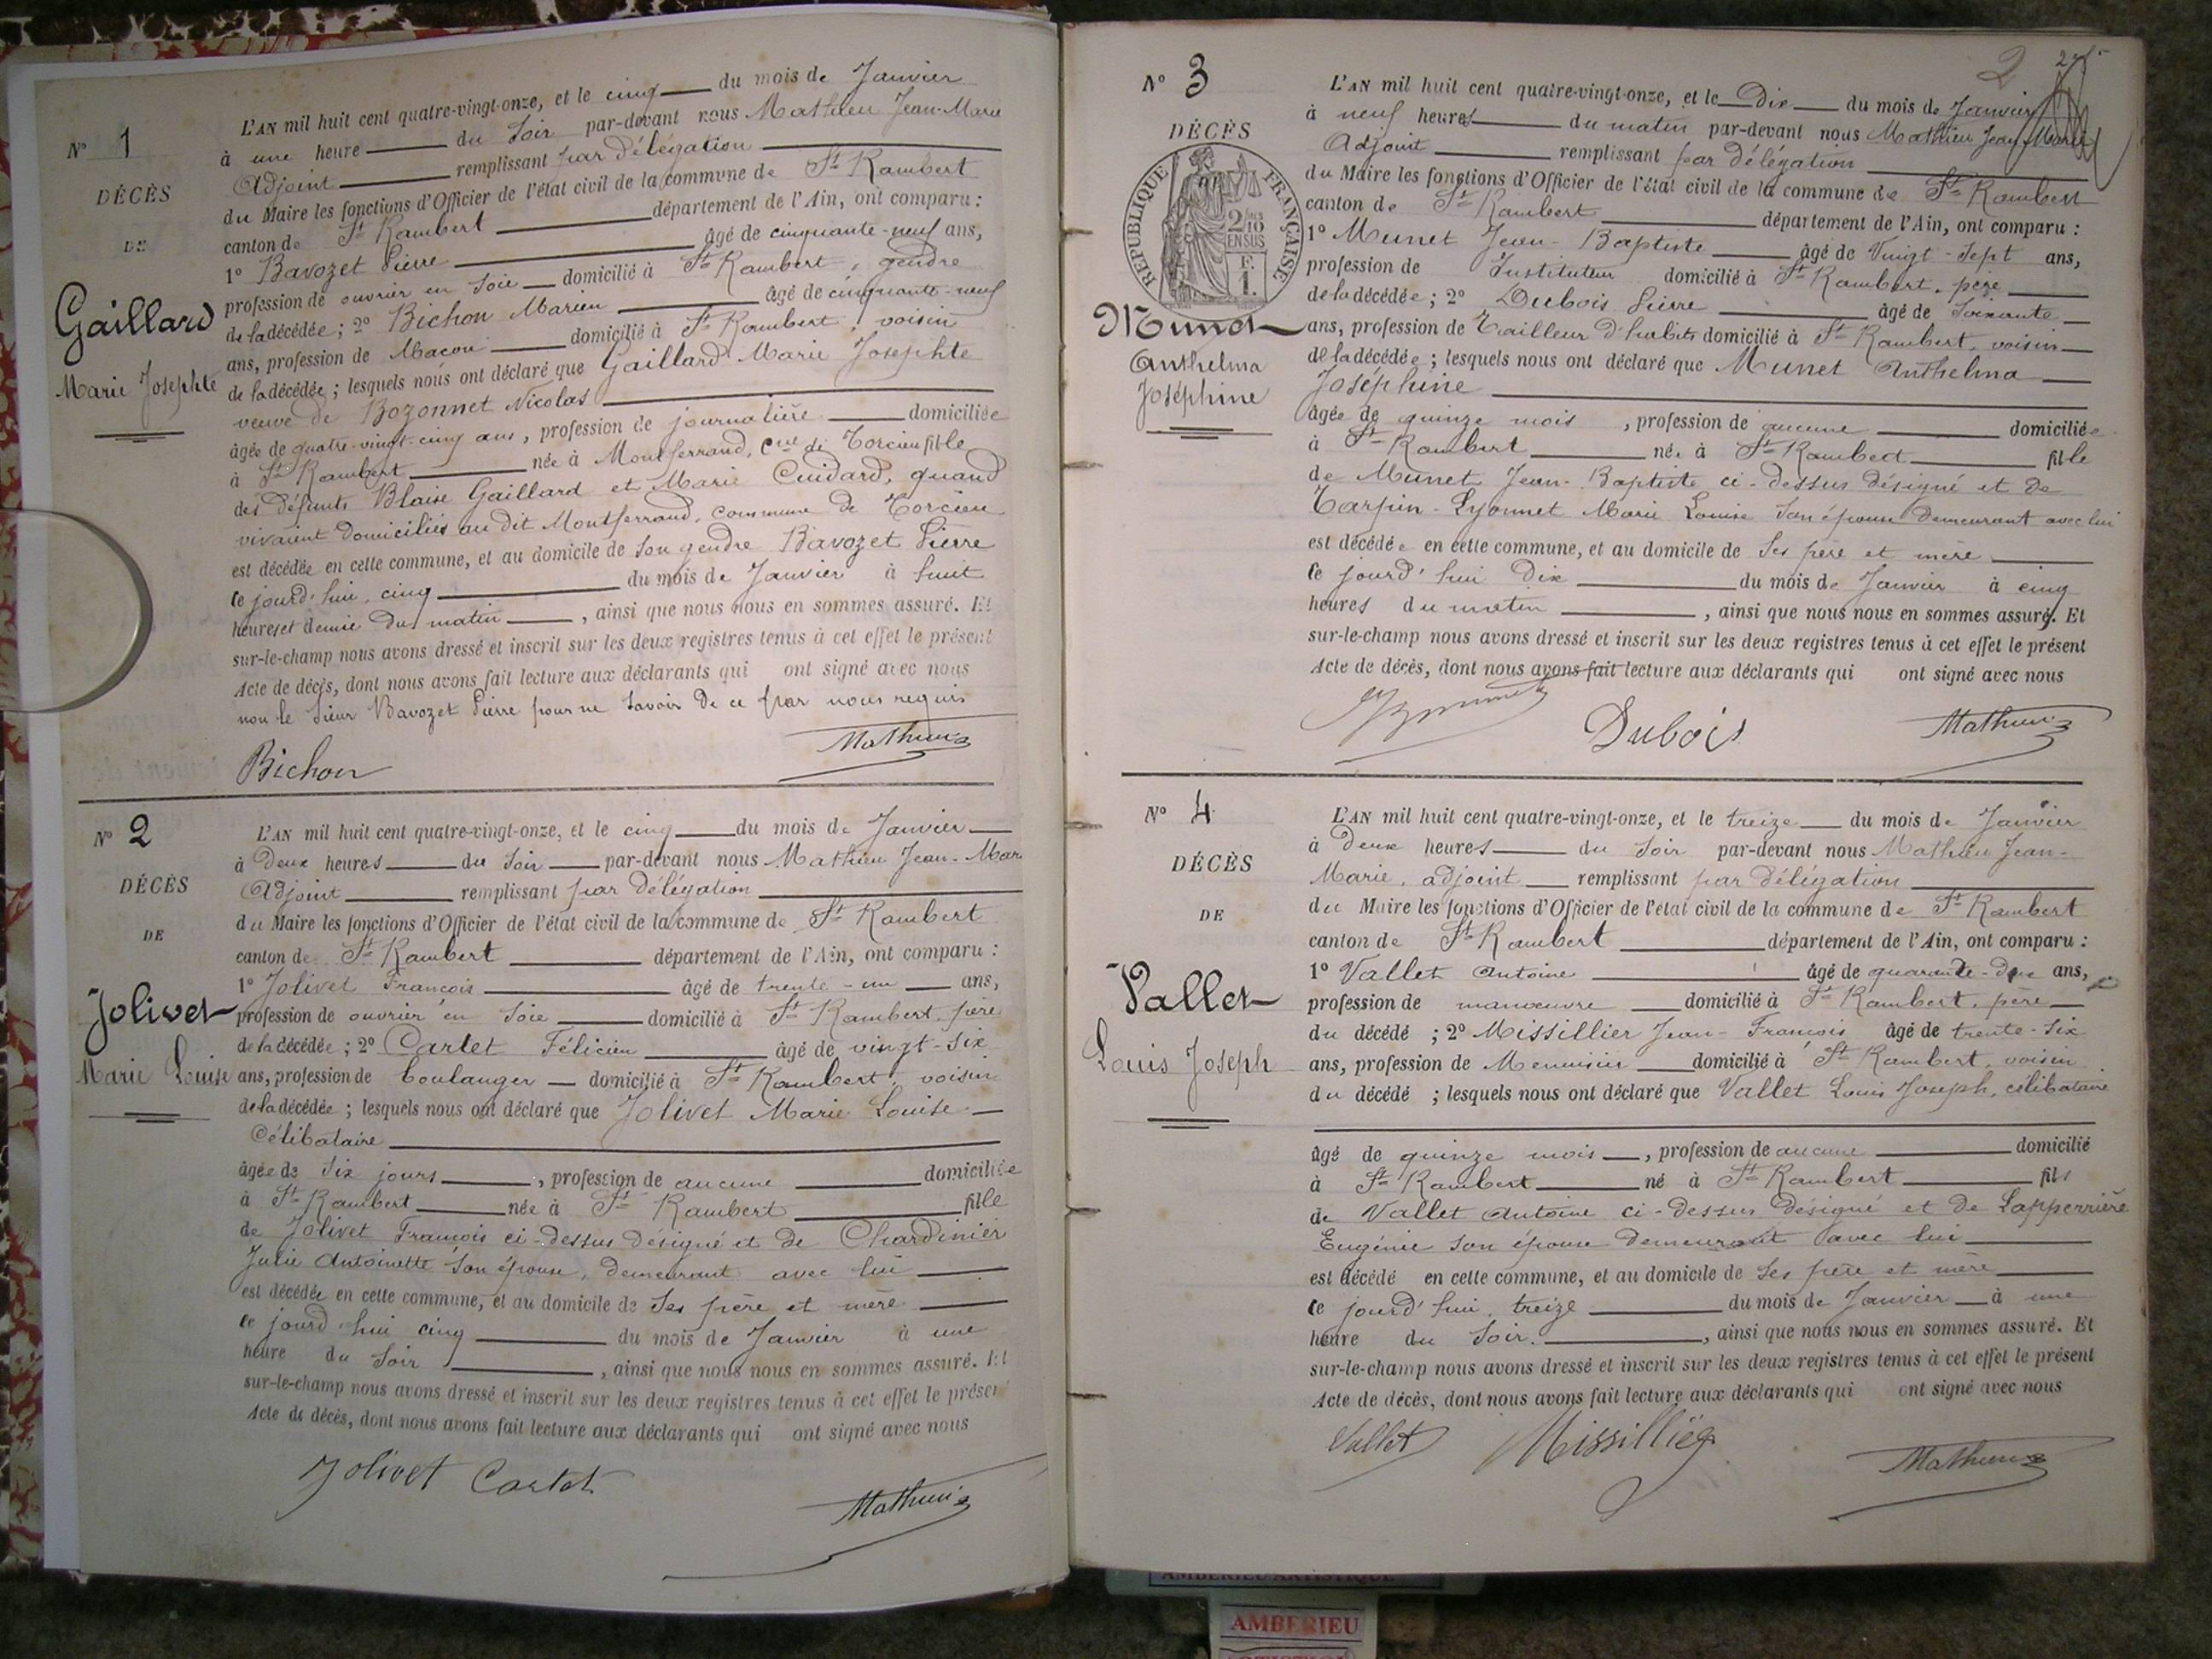 N° 1
DÉCÈS
DE
Gaillard
Marie Josephte
L'AN mil huit cent quatre-vingt-onze, et le cinq du mois de Janvier
à une heure du soir par-devant nous Mathieu Jean-Marie
Adjoint remplissant par délégation
du Maire les fonctions d'Officier de l'état civil de la commune de St Rambert
canton de St Rambert département de l'Ain, ont comparu :
1° Bavozet Pierre âgé de cinquante-neuf ans,
profession de ouvrier en soie domicilié à St Rambert, gendre
de la décédée ; 2° Bichon Marien âgé de cinquante-neuf
ans, profession de Macon domicilié à St Rambert, voisin
de la décédée ; lesquels nous ont déclaré que Gaillard Marie Josephte
veuve de Bozonnet Nicolas
âgée de quatre-vingt-cinq ans, profession de journalière domiciliée
à St Rambert née à Montferrand, Cne de Torcieu fille
des défunts Blaise Gaillard et Marie Cuidard, quand
vivaient domiciliés au dit Montferrand, commune de Torcieu
est décédée en cette commune, et au domicile de son gendre Bavozet Pierre
ce jourd'hui, cinq du mois de Janvier à huit
heures et demie du matin, ainsi que nous nous en sommes assuré. Et
sur-le-champ nous avons dressé et inscrit sur les deux registres tenus à cet effet le présent
Acte de décès, dont nous avons fait lecture aux déclarants qui ont signé avec nous
non le sieur Bavozet Pierre pour ne savoir de ce par nous requis
Bichon Mathieu
N° 2
DÉCÈS
DE
Jolivet
Marie Louise
L'AN mil huit cent quatre-vingt-onze, et le cinq du mois de Janvier
à deux heures du soir par-devant nous Mathieu Jean-Mar
Adjoint remplissant par délégation
du Maire les fonctions d'Officier de l'état civil de la commune de St Rambert
canton de St Rambert département de l'Ain, ont comparu :
1° Jolivet François âgé de trente-un ans,
profession de ouvrier en soie domicilié à St Rambert, père
de la décédée ; 2° Cartet Félicien âgé de vingt-six
ans, profession de boulanger domicilié à St Rambert, voisin
de la décédée ; lesquels nous ont déclaré que Jolivet Marie Louise
Célibataire
âgée de six jours, profession de aucune domiciliée
à St Rambert née à St Rambert fille
de Jolivet François ci-dessus désigné et de Chardinier
Julie Antoinette son épouse, demeurant avec lui
est décédée en cette commune, et au domicile de ses père et mère
ce jourd'hui cinq du mois de Janvier à une
heure du soir, ainsi que nous nous en sommes assuré. Et
sur-le-champ nous avons dressé et inscrit sur les deux registres tenus à cet effet le présen
Acte de décès, dont nous avons fait lecture aux déclarants qui ont signé avec nous
Jolivet Cartet Mathieu
2
N° 3
DÉCÈS
RÉPUBLIQUE FRANÇAISE
2/10
EN SUS
F.
1.
Munet
Anthelma
Joséphine
L'AN mil huit cent quatre-vingt-onze, et le Dix du mois de Janvier
à neuf heures du matin par-devant nous Mathieu Jean Marie
Adjoint remplissant par délégation
du Maire les fonctions d'Officier de l'état civil de la commune de St Rambert
canton de St Rambert département de l'Ain, ont comparu :
1° Munet Jean-Baptiste âgé de Vingt-sept ans,
profession de Instituteur domicilié à St Rambert, père
de la décédée ; 2° Dubois Pierre âgé de soixante
ans, profession de Tailleur d'habits domicilié à St Rambert, voisin
de la décédée ; lesquels nous ont déclaré que Munet Anthelma
Joséphine
âgée de quinze mois, profession de aucune domiciliée
à St Rambert née à St Rambert fille
de Munet Jean-Baptiste ci-dessus désigné et de
Tarpin-Lyonnet Marie Louise son épouse demeurant avec lui
est décédée en cette commune, et au domicile de ses père et mère
ce jourd'hui Dix du mois de Janvier à cinq
heures du matin, ainsi que nous nous en sommes assuré. Et
sur-le-champ nous avons dressé et inscrit sur les deux registres tenus à cet effet le présent
Acte de décès, dont nous avons fait lecture aux déclarants qui ont signé avec nous
Dubois Mathieu
N° 4
DÉCÈS
DE
Vallet
Louis Joseph
L'AN mil huit cent quatre-vingt-onze, et le treize du mois de Janvier
à deux heures du soir par-devant nous Mathieu Jean-
Marie, adjoint remplissant par délégation
du Maire les fonctions d'Officier de l'état civil de la commune de St Rambert
canton de St Rambert département de l'Ain, ont comparu :
1° Vallet Antoine âgé de ans,
profession de manoeuvre domicilié à St Rambert, père
du décédé ; 2° Missillier Jean-François âgé de trente-six
ans, profession de Menuisier domicilié à St Rambert, voisin
du décédé ; lesquels nous ont déclaré que Vallet Louis Joseph, célibataire
âgé de quinze mois, profession de aucune domicilié
à St Rambert né à St Rambert fils
de Vallet Antoine ci-dessus désigné et de Lapperrière
Eugénie son épouse demeurant avec lui
est décédé en cette commune, et au domicile de ses père et mère
ce jourd'hui, treize du mois de Janvier à une
heure du soir, ainsi que nous nous en sommes assuré. Et
sur-le-champ nous avons dressé et inscrit sur les deux registres tenus à cet effet le présent
Acte de décès, dont nous avons fait lecture aux déclarants qui ont signé avec nous
Vallet Missillier Mathieu
AMBERIEU ARTISTIQUE
AMBERIEU